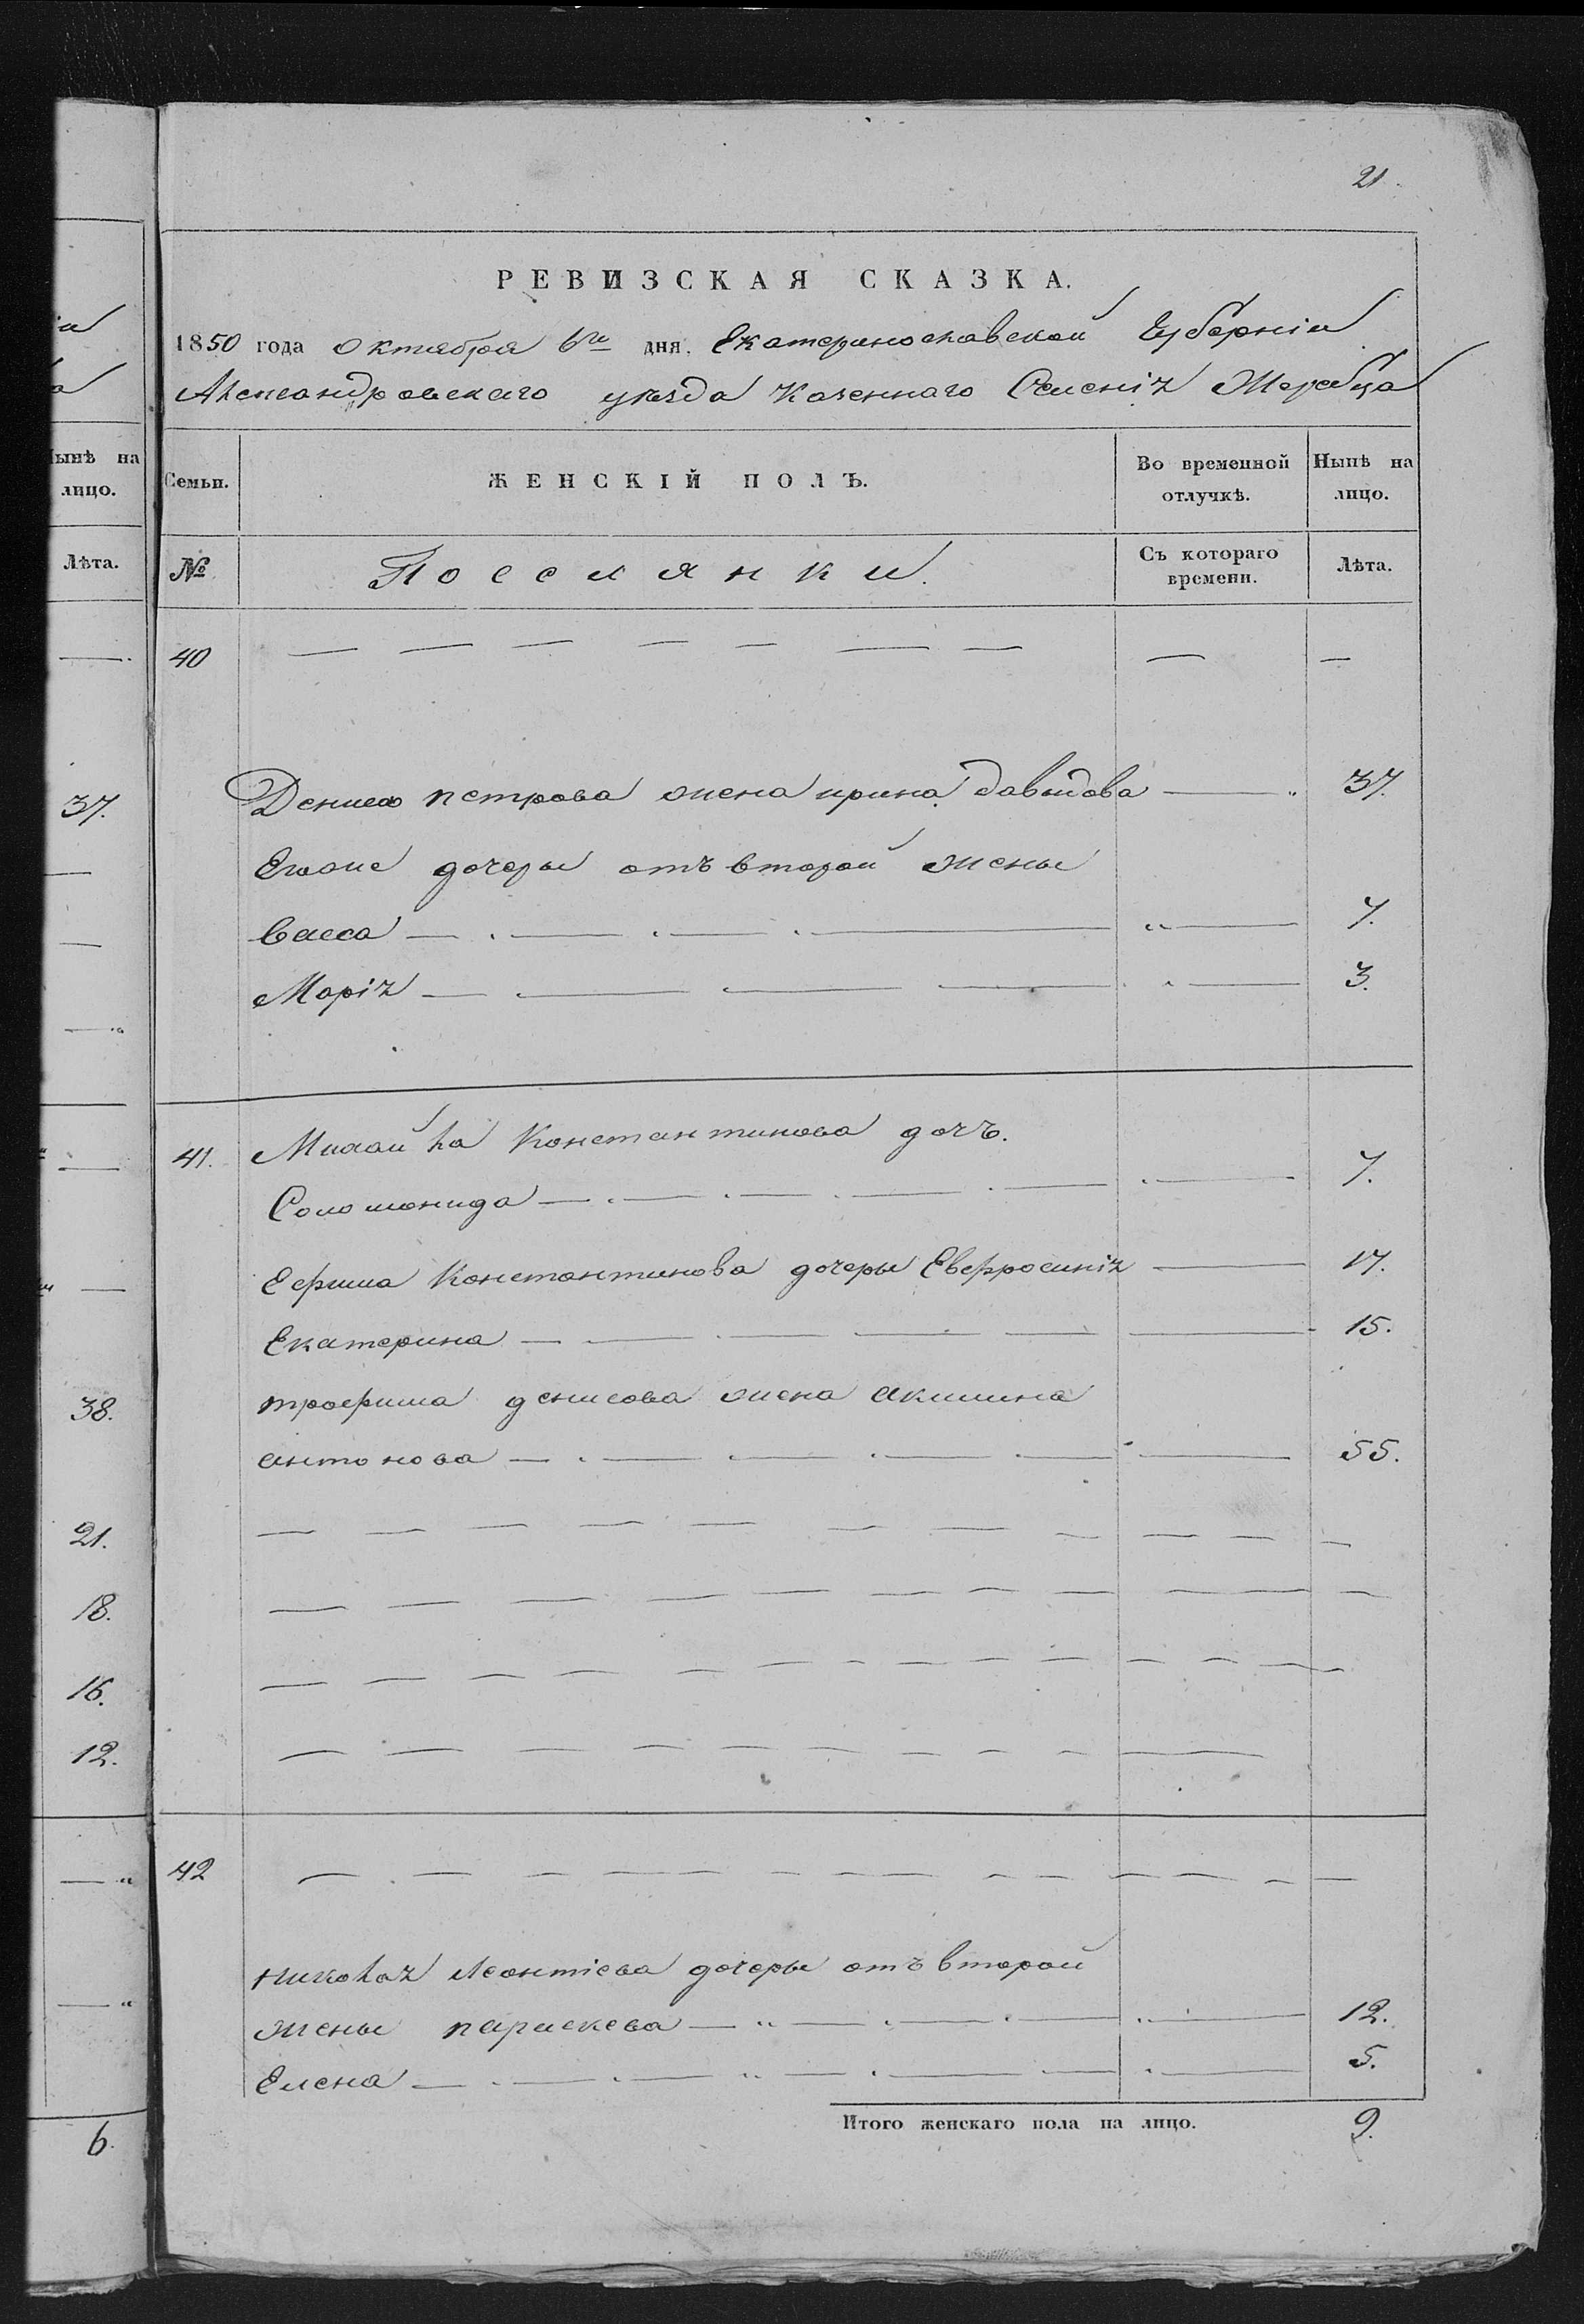 21.
РЕВИЗСКАЯ СКАЗКА.
1850 года Октября 6го дня. Екатеринославской Губерніи
Александровскаго уезда Казеннаго Селенія Жеребца
Нынѣ на лицо.
Семьи.
ЖЕНСКІЙ ПОЛЪ.
Во временной отлучкѣ.
Нынѣ на лицо.
Лѣта.
№
Поселянки.
Съ котораго времени.
Лѣта.
40 — — — — — — — — —
37.
Дениса петрова жена ирина давыдова — 37.
Егоже дочеры отъ второй жены
васса — 7.
Марія — 3.
41. Михайла Константинова дочь.
Соломонида — 7.
Ефима Константинова дочеры Евфросинія — 17.
Екатерина — 15.
38.
трофима денисова жена акилина
антонова — 55.
21.
18.
16.
12.
42 — — — — — — — — —
николая Леонтіева дочеры отъ второй
жены параскева — 12.
Елена — 5.
Итого женскаго пола на лицо. 9.
6.